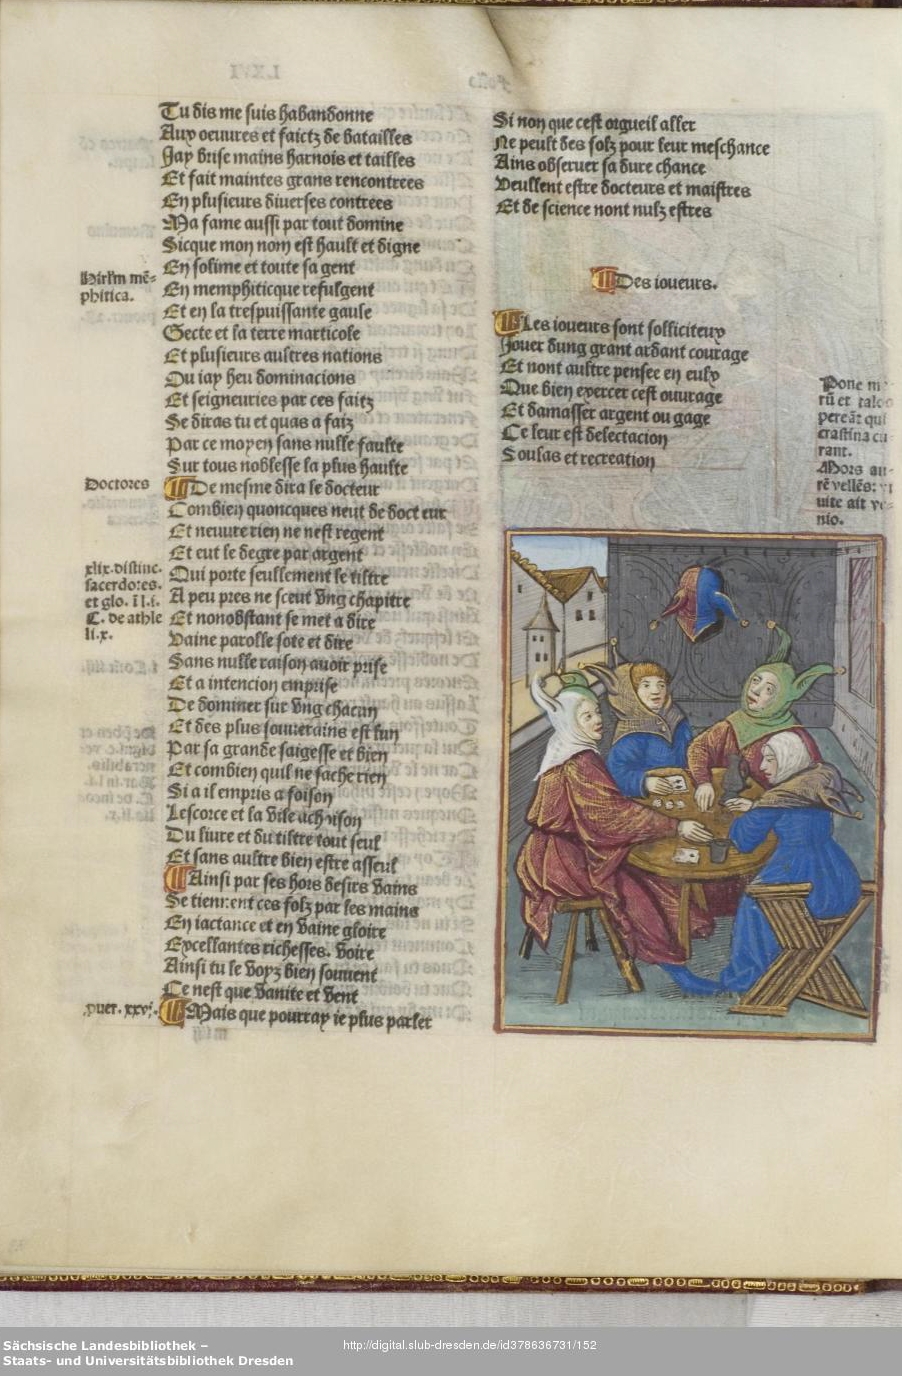 Tu dis me suis habandonne
Aux oeuures et faictz de batailles
Jay brise mains harnois et tailles
Et fait maintes grans rencontrees
En plusieurs diuerses contrees
Ma fame aussi par tout domine
Sicque mon nom est hault et digne
En solime et toute sa gent
En memphiticque refulgent
Et en la trespuissante gaule
Secte et la terre marticole
Et plusieurs aultres nations
Ou iay heu dominacions
Et seigneuries par ces faitz
Se diras tu et quas a faiz
Par ce moyen sans nulle faulte
Sur tous noblesse la plus haulte
De mesme dira le docteur
Combien quoncques neut de doct eur
Et neuure rien ne nest regent
Et eut le degre par argent
Qui porte seullement le tiltre
A peu pres ne sceut vng chapitre
Et nonobstant se met a dire
Vaine parolle sote et dire
Sans nulle raison auoir prise
Et a intencion emprise
De dominer sur vng chacun
Et des plus souuerains est lun
Par sa grande saigesse et bien
Et combien quil ne sache rien
Si a il empris a foison
Lescorce et la vile achoison
Du liure et du tiltre tout seul
Et sans aultre bien estre asseul
Ainsi par ses hors desirs vains
Se tiennent ces folz par les mains
En iactance et en vaine gloire
Excellantes richesses. voire
Ainsi tu le voyz bien souuent
Ce nest que vanite et vent
Mais que pourray ie plus parler
phitica.
Doctores
xlix. distinc.
sacerdotes.
et glo. i l. i.
C. de athle
li. x.
puer. xxvj.
Si non que cest orgueil aller
Ne peult des folz pour leur meschance
Ains obseruer sa dure chance
Veullent estre docteurs et maistres
Et de science nont nulz estres
Des ioueurs.
Les ioueurs sont solliciteux
Jouer dung grant ardant courage
Et nont aultre pensee en eulx
Que bien exercer cest ouurage
Et damasser argent ou gage
Ce leur est delectacion
Soulas et recreation
Pone
rū et
qui
crastina
rant.
Mors
uite ait
nio.
Sächsische Landesbibliothek –
Staats- und Universitätsbibliothek Dresden
http://digital.slub-dresden.de/id378636731/152